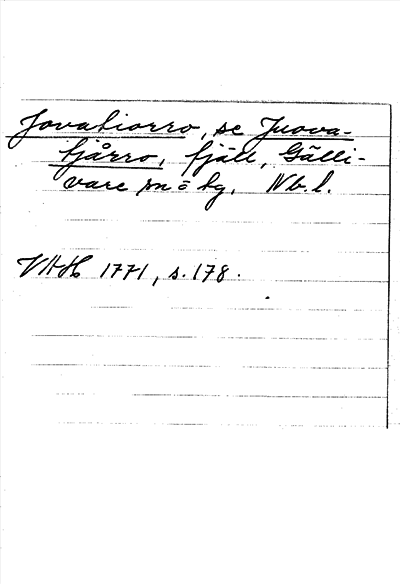 Jovakiorro, se Juova-
kjårro, fjäll, Gälli-
vare sn o kg, Nb. l.
VAH 1771, s. 178.